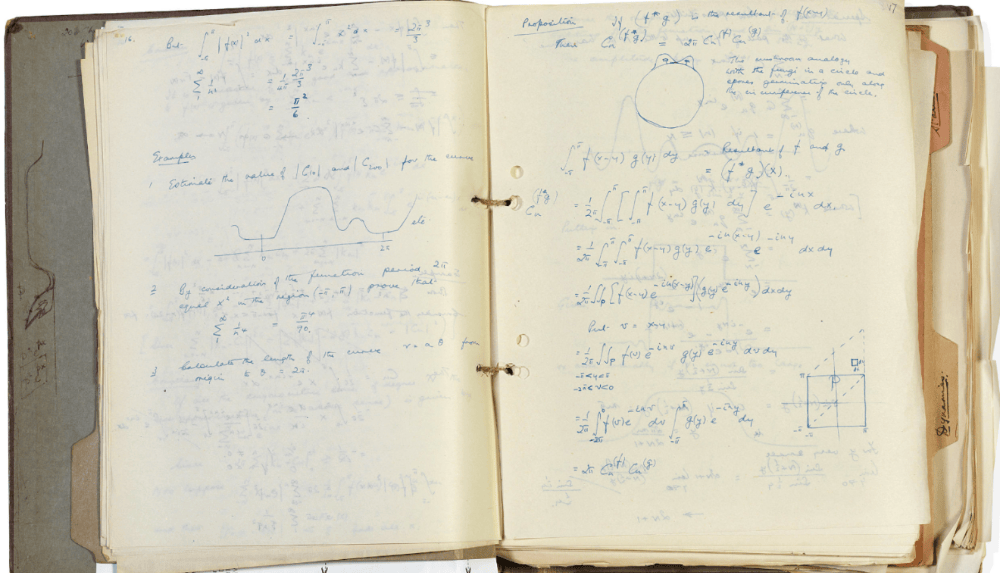 16.
But ∫_{-π}^{π} |f(x)|² dx = ∫_{-π}^{π} x² dx = 2π³/3
∑_1^∞ 1/n² = 1/4π 2π³/3
= π²/6
Examples
1 Estimate the value of |C₁₀| and |C₁₀₀| for the curve
etc
0 2π
2 By consideration of the function period 2π
equal x² in the region (-π, π) prove that
∑_1^∞ 1/n⁴ = π⁴/90.
3 Calculate the length of the curve r = a θ from
origin to θ = 2π.
17
Proposition If (f*g) is the resultant of f(x)
Then Cₙ^(f*g) = 2π Cₙ^(f) Cₙ^(g)
The mushroom analogy
with the fungi in a circle and
spores germinating only along
the circumference of the circle.
∫_{-π}^{π} f(x-y) g(y) dy = Resultant of f and g
= (f*g)(x)
Cₙ^(f*g) = 1/2π ∫_{-π}^{π} [∫_{-π}^{π} f(x-y) g(y) dy] e^{-inx} dx
= 1/2π ∫_{-π}^{π} ∫_{-π}^{π} f(x-y) g(y) e^{-in(x-y)} e^{-iny} dx dy
= 1/2π ∫∫ [f(x-y) e^{-in(x-y)}] (g(y) e^{-iny}) dx dy
Put v = x-y
= 1/2π ∫∫ f(v) e^{-inv} g(y) e^{-iny} dv dy
-π<y<π
-2π<v<0
= 1/2π ∫_{-2π}^{0} f(v) e^{-inv} dv ∫_{-π}^{π} g(y) e^{-iny} dy
= 2π Cₙ^(f) Cₙ^(g)
Dynamics.